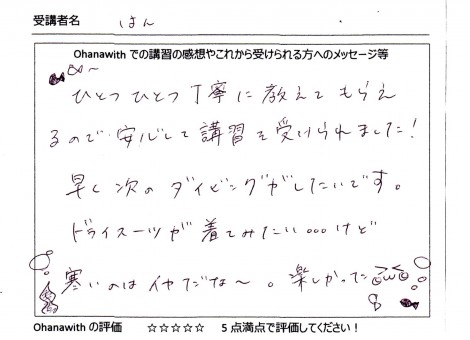 受講者名 はん
Ohanawith での講習の感想やこれから受けられる方へのメッセージ等
ひとつひとつ丁寧に教えてもらえ
るので安心して講習を受けられました!
早く次のダイビングがしたいです。
ドライスーツが着てみたい。。。けど
寒いのはイヤだな〜。楽しかった
Ohanawith の評価 ☆☆☆☆☆ 5点満点で評価してください！